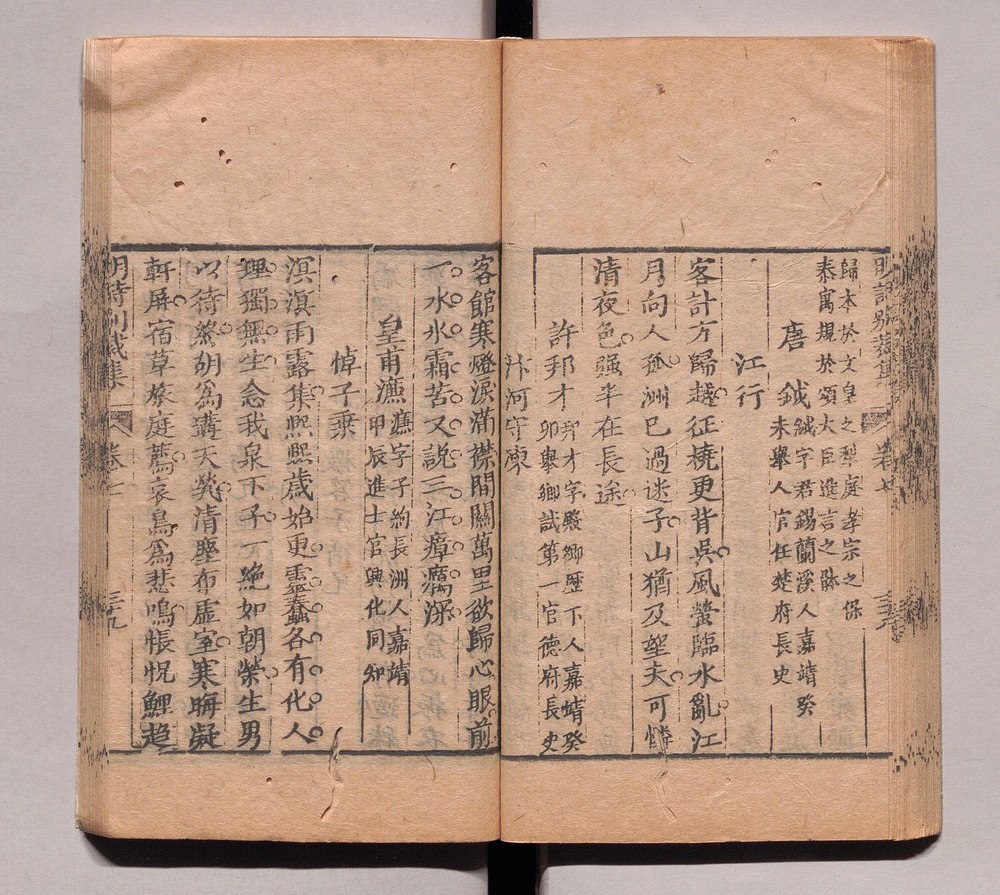 明詩別裁集 卷七 三九
歸本於文皇之犁庭孝宗之保
泰寓規於頌大臣進言之脉
唐鉞 鉞字君錫蘭溪人嘉靖癸
未舉人官任楚府長史
江行
客計方歸越征橈更背吳風螢臨水亂江
月向人孤洲已過迷子山猶及望夫可憐
清夜色强半在長途
許邦才 邦才字殿卿歷下人嘉靖癸
卯舉鄉試第一官德府長史
汴河守凍
客館寒燈淚滿襟間關萬里欲歸心眼前
一水氷霜苦又說三江瘴癘深
皇甫濂 濂字子約長洲人嘉靖
甲辰進士官興化同知
悼子乗
溟溟雨露集熙熙歲始更靈蠢各有化人
理獨無生念我泉下子一絶如朝榮生男
以待養胡爲遘夭煢清塵布虛室寒晦凝
軒屏宿草旅庭薦哀鳥爲悲鳴悵怳鯉趋
明詩別裁集 卷七 三九